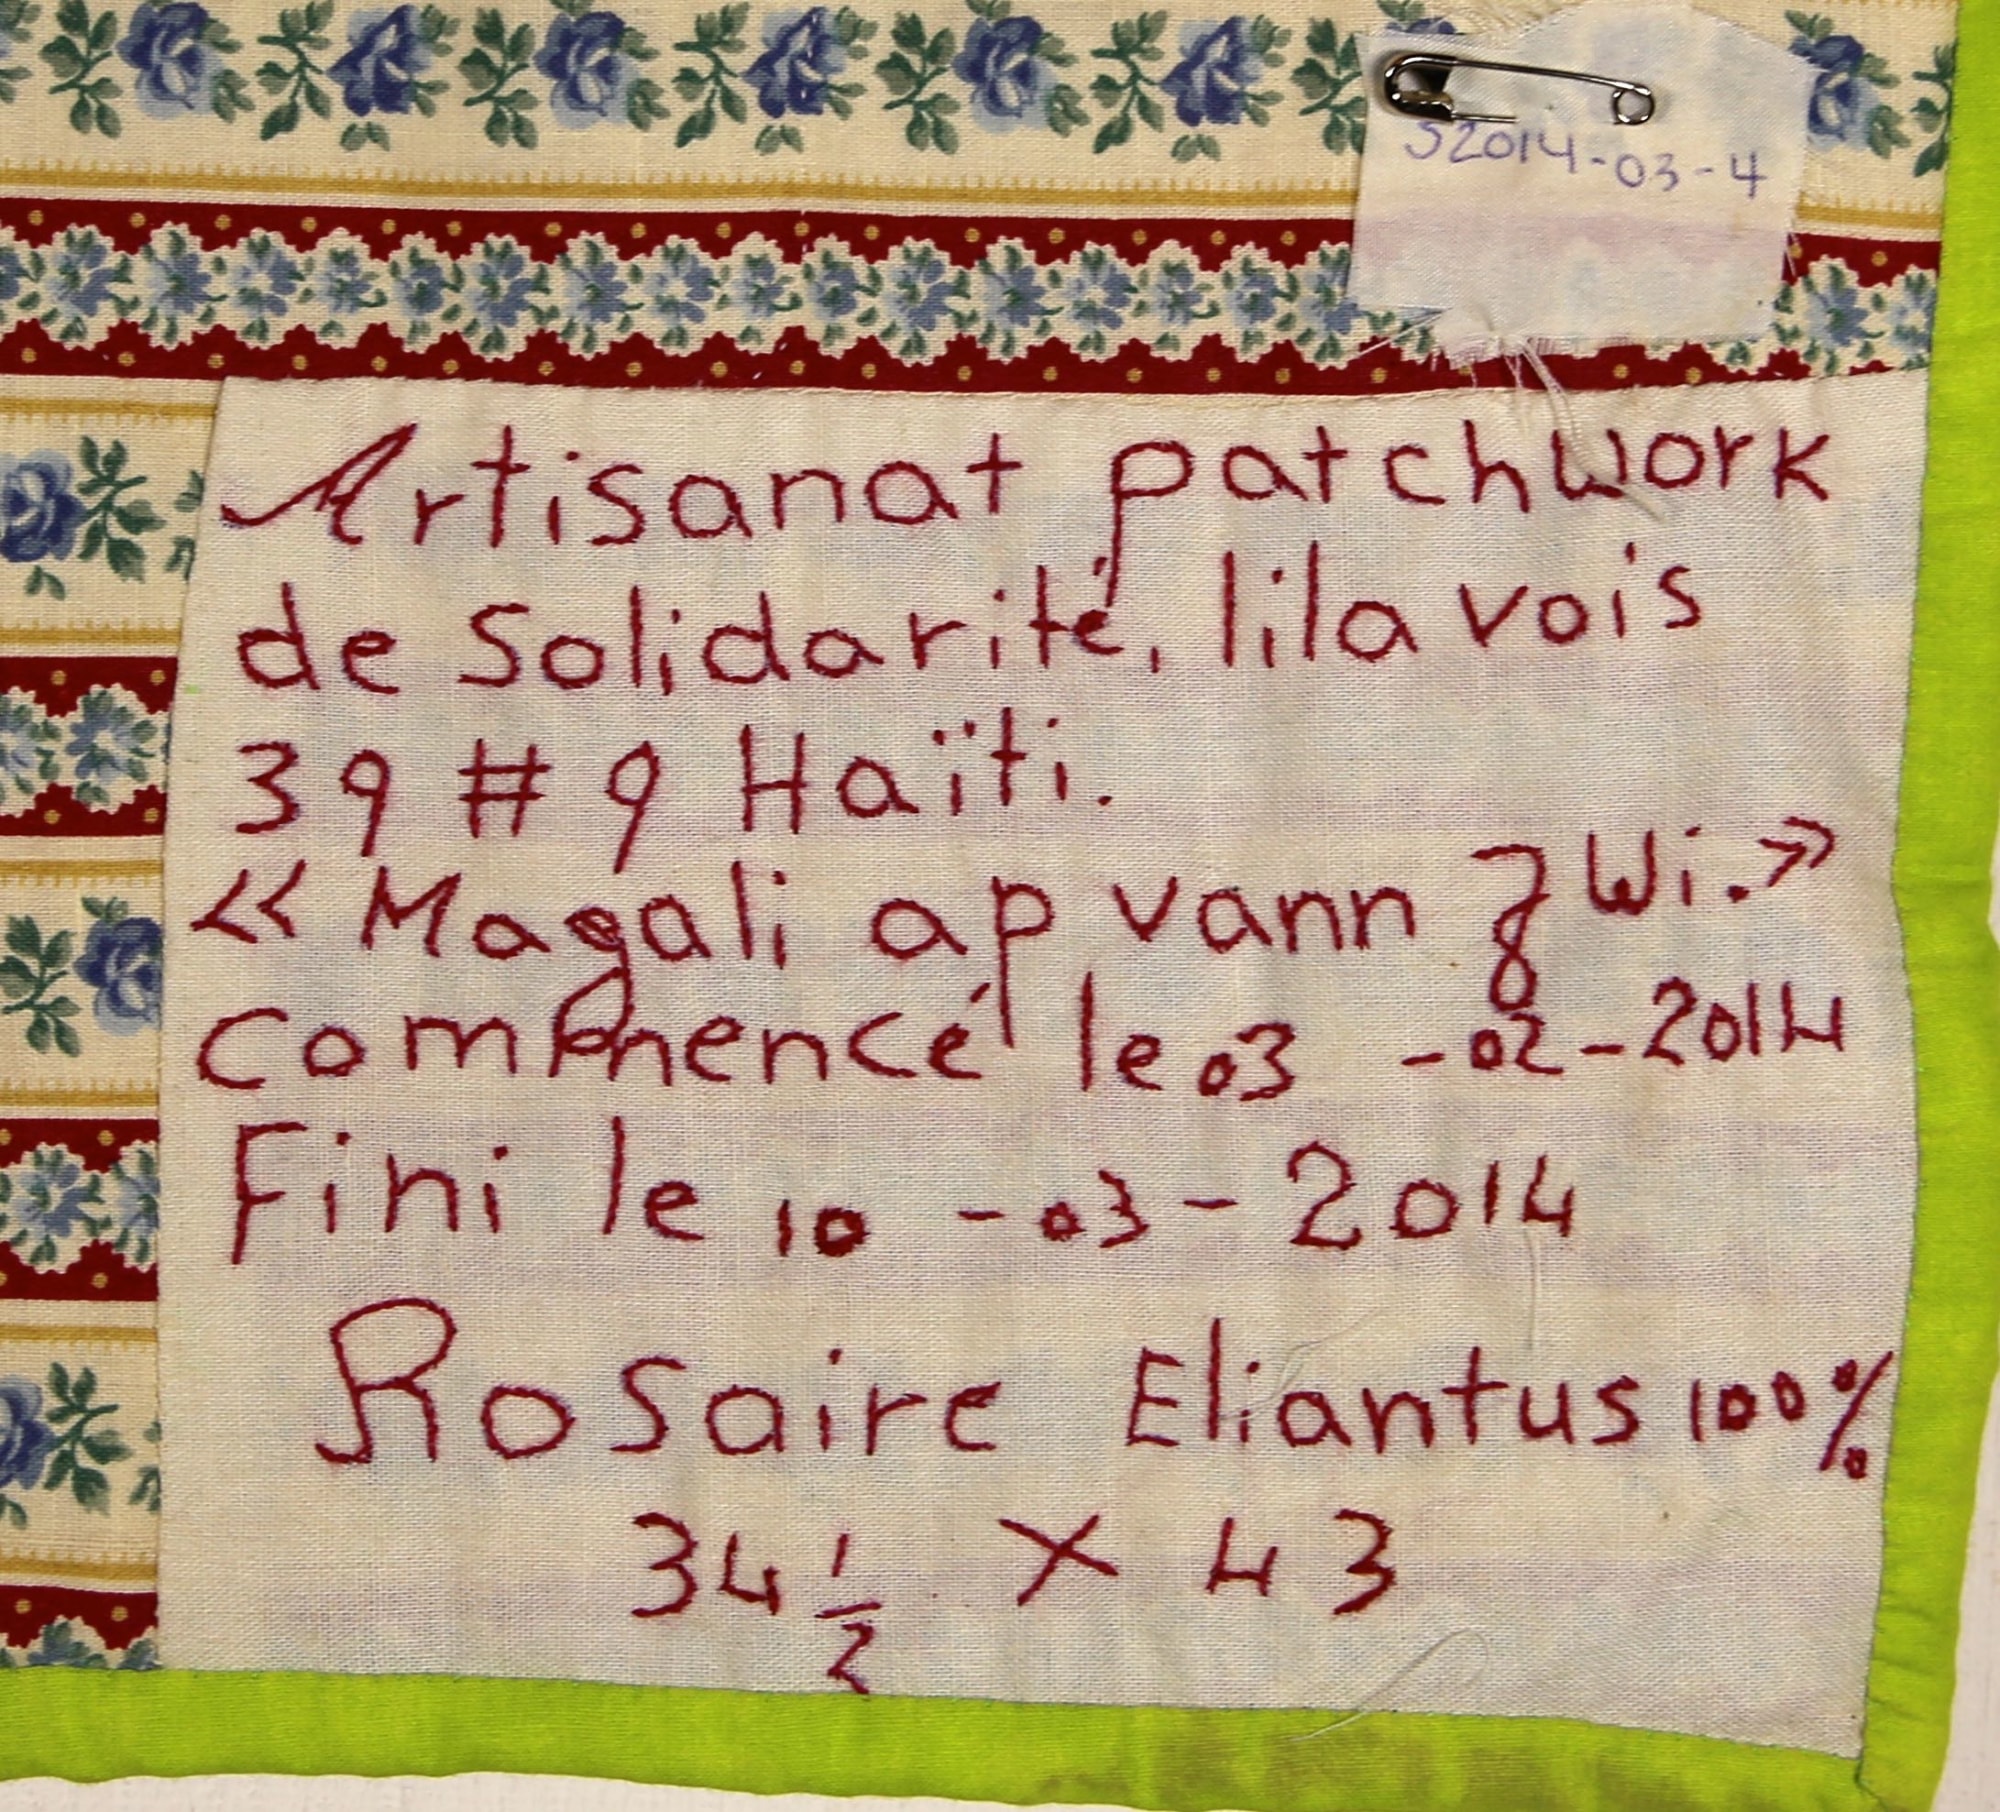 S2014-03-4
Artisanat patchwork
de Solidarité, lila vois
39 # 9 Haïti.
<< Magali ap vann zwi. >>
commencé le 03 -02-2014
Fini le 10 -03-2014
Rosaire Eliantus 100%
34 1/2 X 43